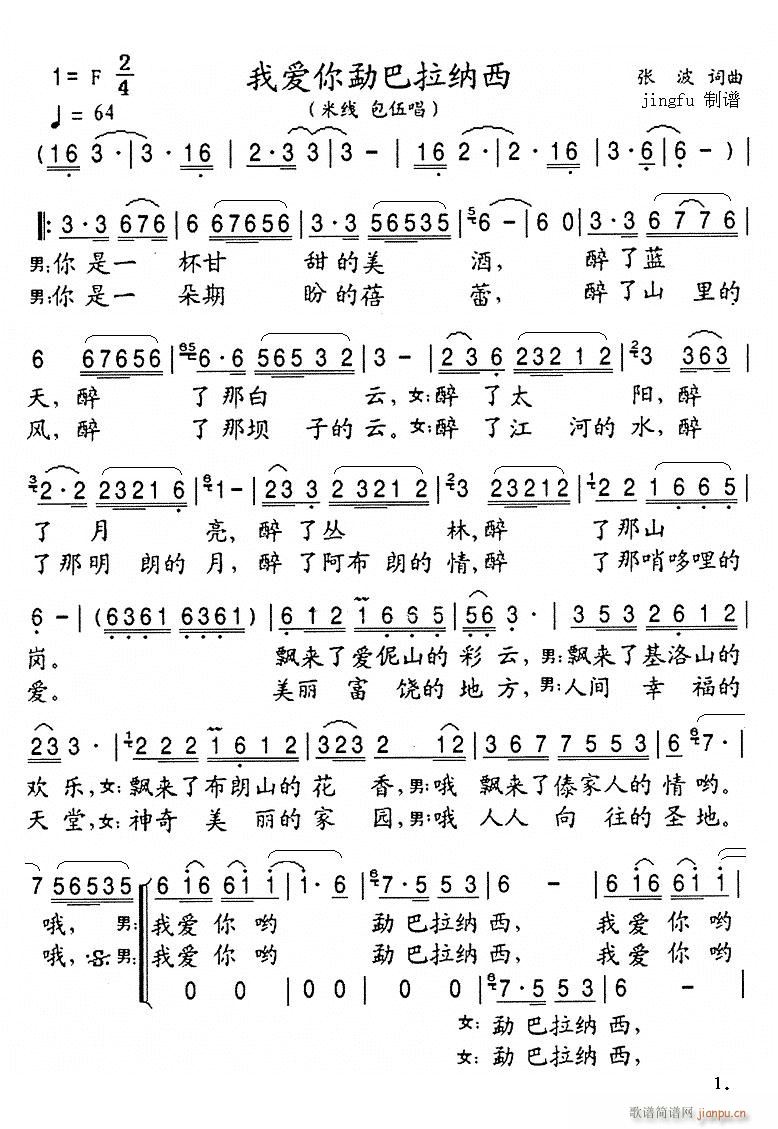 1= F 2/4
我爱你勐巴拉纳西
张 波 词曲
♩= 64
（米线 包伍唱）
jingfu 制谱
(16 3·|3·16|2·33|3-|16 2·|2·16|3·6|6-)|
‖:3·3 676|6 67656|3·3 56535|6-|6 0|3·3 6776|
男:你是一 杯甘 甜的美 酒, 醉了蓝
男:你是一 朵期 盼的蓓 蕾, 醉了山 里的
6 67656|6·6 56532|3-|236 23212|3 363|
天, 醉 了那白 云,女:醉 了太 阳,醉
风, 醉 了那坝 子的云。女:醉 了江 河的水,醉
2·2 23216|1-|233 23212|3 23212|22 1665|
了 月 亮, 醉了丛 林,醉 了那山
了那明 朗的月, 醉了阿布朗的情,醉 了那哨哆哩的
6-|(6361 6361)|6122 1665|56 3·|3532 2612|
岗。 飘来了爱伲山的彩云,男:飘来了基洛山的
爱。 美丽富饶的地方,男:人间幸福的
233·|222 1612|3232 12|367 7553|7·|
欢乐,女:飘来了布朗山的花 香,男:哦 飘来了傣家人的情哟。
天堂,女:神奇美丽的家 园,男:哦 人人向往的圣地。
7 56535|6 16 611|1·6|7·553|6-|6 16 611|
哦, 男:我爱你哟 勐巴拉纳西, 我爱你哟
哦, 男:我爱你哟 勐巴拉纳西, 我爱你哟
0 0|0 0|0 0|7·553|6 -|
女:勐巴拉纳西,
女:勐巴拉纳西,
1.
歌谱简谱网
jianpu.cn